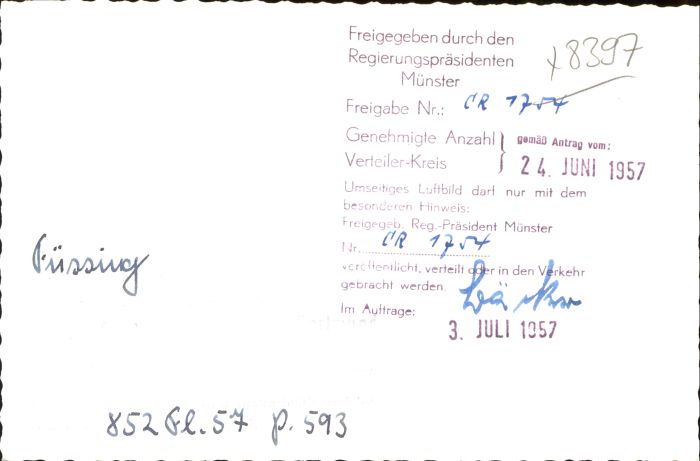 Freigegeben durch den
Regierungspräsidenten
Münster
+8397
Freigabe Nr.: CR 1754
Genehmigte Anzahl
Verteiler-Kreis
gemäß Antrag vom:
24. JUNI 1957
Umseitiges Luftbild darf nur mit dem
besonderen Hinweis:
Freigegeb. Reg.-Präsident Münster
Nr. CR 1754
veröffentlicht, verteilt oder in den Verkehr
gebracht werden.
Im Auftrage:
3. JULI 1957
Füssing
852 Fl. 57 p. 593